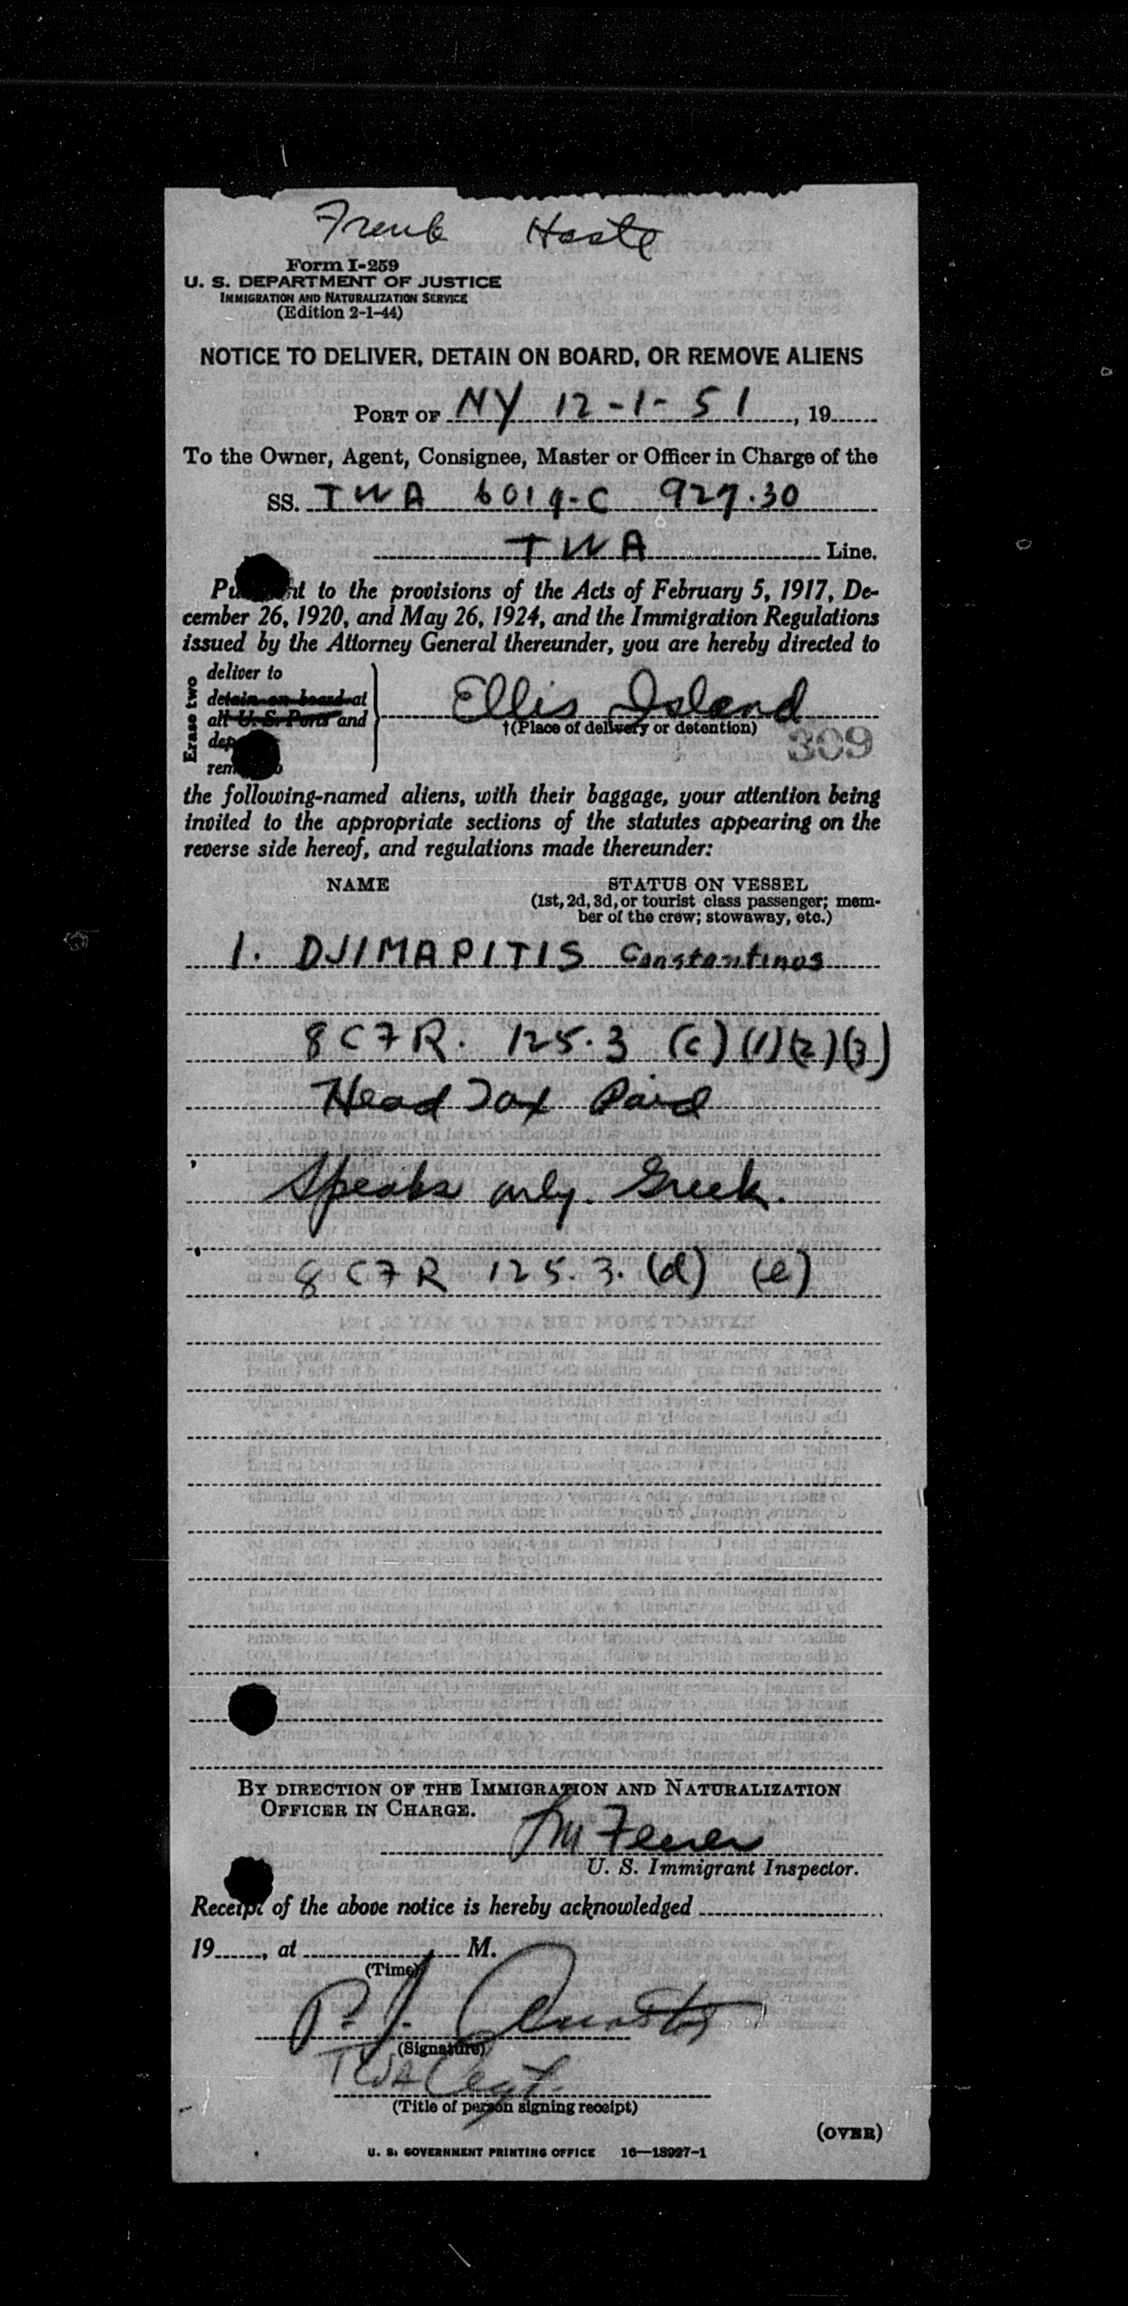 Form I-259
U. S. DEPARTMENT OF JUSTICE
IMMIGRATION AND NATURALIZATION SERVICE
(Edition 2-1-44)
NOTICE TO DELIVER, DETAIN ON BOARD, OR REMOVE ALIENS
PORT OF NY 12-1-51, 19
To the Owner, Agent, Consignee, Master or Officer in Charge of the
SS. TWA 6019-C 927.30
TWA Line.
to the provisions of the Acts of February 5, 1917, De-
cember 26, 1920, and May 26, 1924, and the Immigration Regulations
issued by the Attorney General thereunder, you are hereby directed to
Erase two
deliver to
detain on board at
all U. S. Ports and
Ellis Island
†(Place of delivery or detention)
309
the following-named aliens, with their baggage, your attention being
invited to the appropriate sections of the statutes appearing on the
reverse side hereof, and regulations made thereunder:
NAME STATUS ON VESSEL
(1st, 2d, 3d, or tourist class passenger; mem-
ber of the crew; stowaway, etc.)
1. DJIMAPITIS Constantinos
8 CFR. 125.3 (c) (1) (2) (3)
Head Tax Paid
Speaks only Greek.
8 CFR 125.3. (d) (e)
BY DIRECTION OF THE IMMIGRATION AND NATURALIZATION
OFFICER IN CHARGE.
U. S. Immigrant Inspector.
Receipt of the above notice is hereby acknowledged
19, at M.
(Time)
P. J.
(Signature)
TWA Agt.
(Title of person signing receipt)
(OVER)
U. S. GOVERNMENT PRINTING OFFICE 16—18927-1